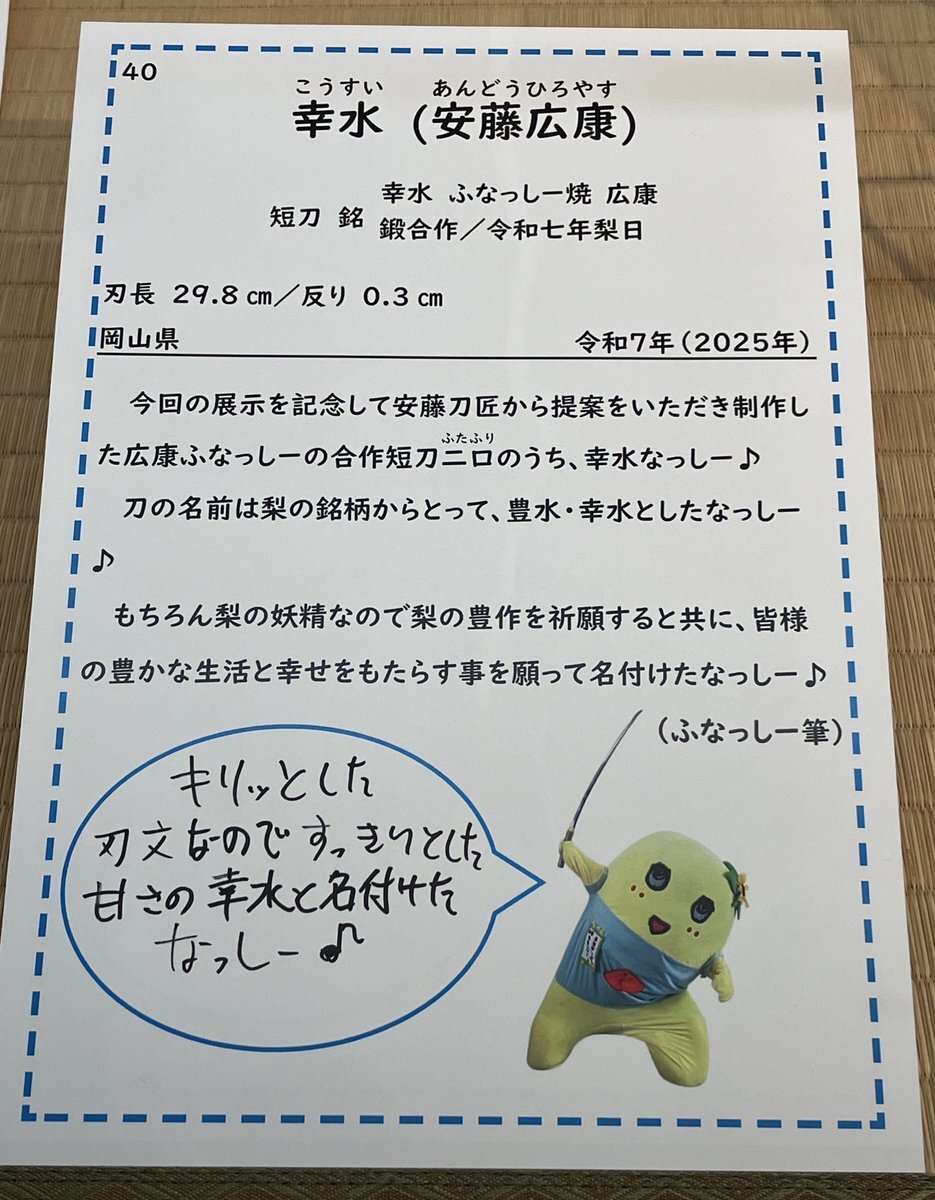 40
こうすい あんどうひろやす
幸水 (安藤広康)
短刀 銘 幸水 ふなっしー焼 広康
鍛合作／令和七年梨日
刃長 29.8㎝／反り 0.3㎝
岡山県 令和7年(2025年)
今回の展示を記念して安藤刀匠から提案をいただき制作し
ふたふり
た広康ふなっしーの合作短刀二口のうち、幸水なっしー♪
刀の名前は梨の銘柄からとって、豊水・幸水としたなっしー
♪
もちろん梨の妖精なので梨の豊作を祈願すると共に、皆様
の豊かな生活と幸せをもたらす事を願って名付けたなっしー♪
(ふなっしー筆)
キリッとした
刃文なのですっきりとした
甘さの幸水と名付けた
なっしー♪